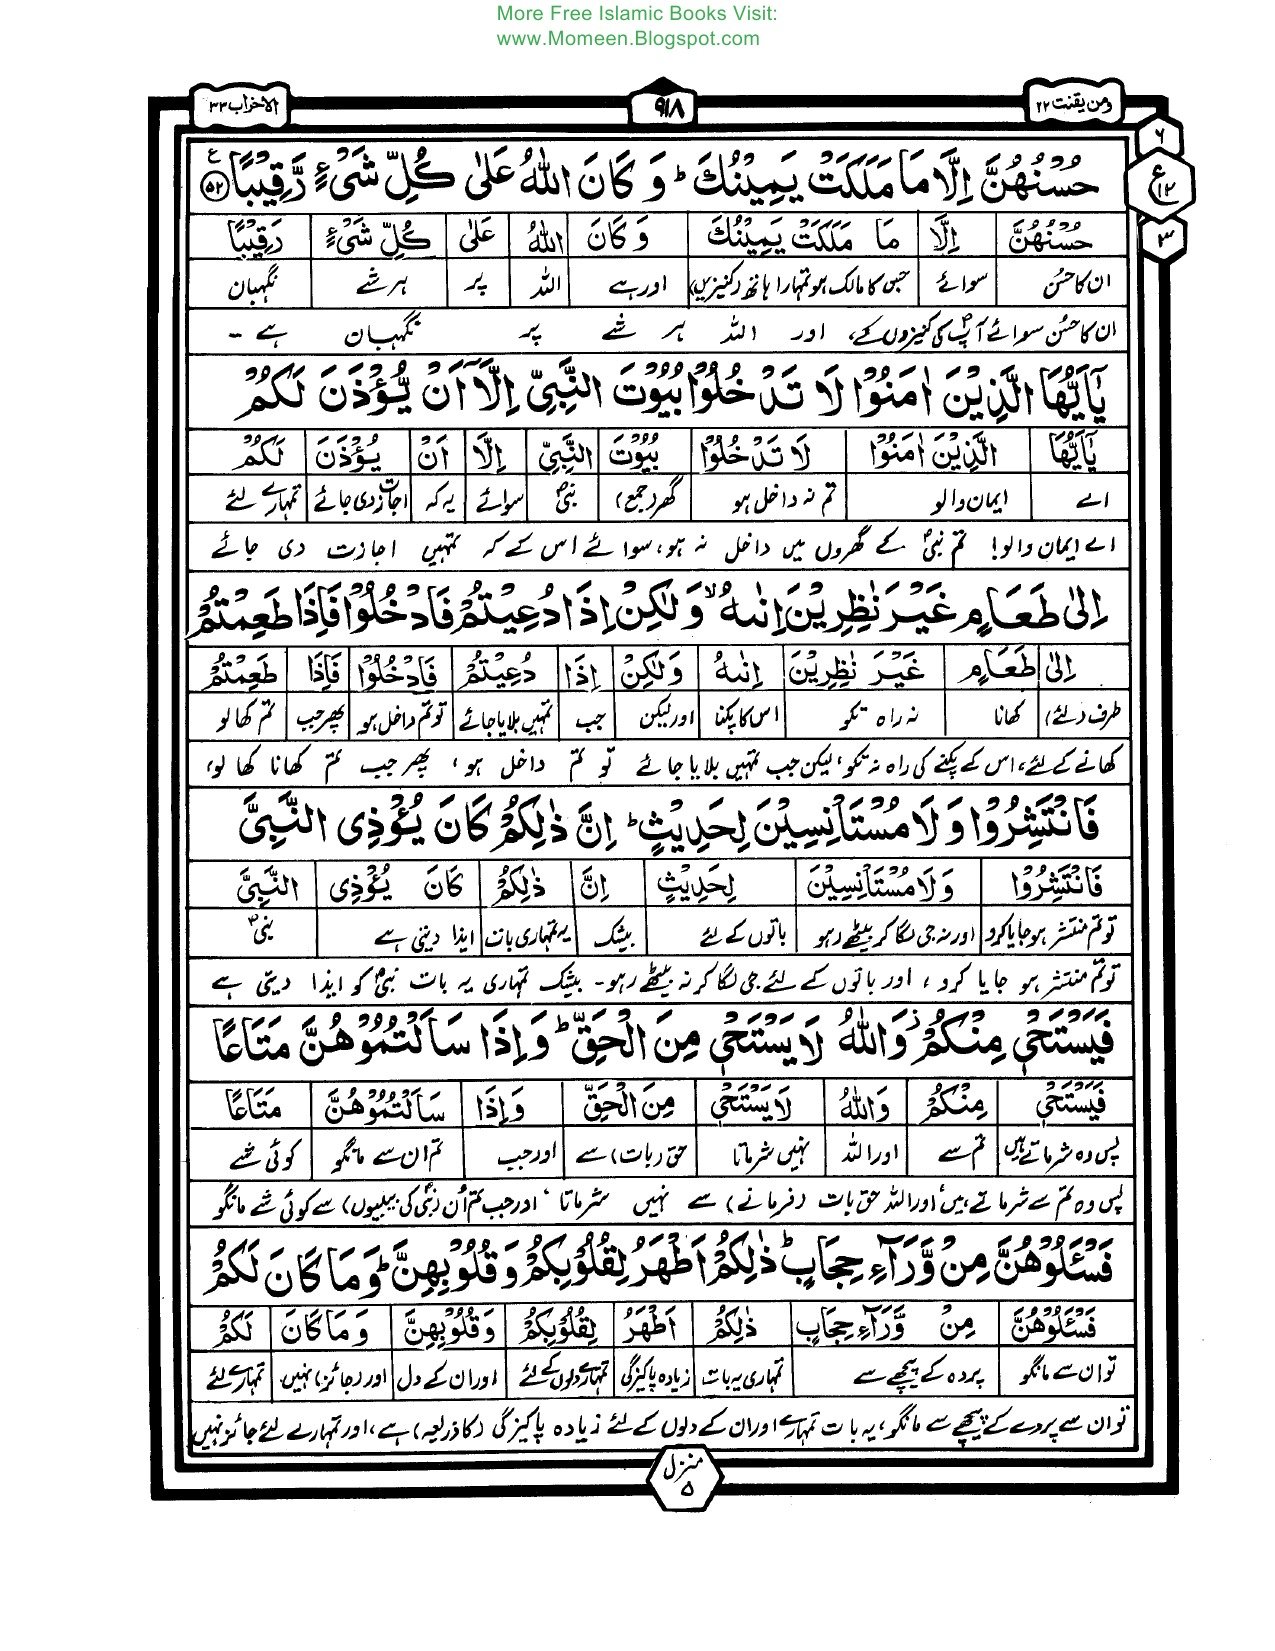 More Free Islamic Books Visit:
www.Momeen.Blogspot.com
ومن یقنت ۲۲
۹۱۸
الاحزاب ۳۳
۶
ع
۱۲
۳
حُسْنُهُنَّ اِلَّا مَا مَلَكَتْ يَمِيْنُكَ ؕ وَ كَانَ اللّٰهُ عَلٰى كُلِّ شَىْءٍ رَّقِيْبًا ۵۲ ع
حُسْنُهُنَّ اِلَّا مَا مَلَكَتْ يَمِيْنُكَ وَ كَانَ اللّٰهُ عَلٰى كُلِّ شَىْءٍ رَقِيْبًا
ان کا حسُن سوائے جس کا مالک ہو تمہارا ہاتھ (کنیزیں) اور ہے اللہ پر ہر شے نگہبان
ان کا حسُن سوائے آپؐ کی کنیزوں کے، اور اللہ ہر شے پر نگہبان ہے ۔
يٰۤاَيُّهَا الَّذِيْنَ اٰمَنُوْا لَا تَدْخُلُوْا بُيُوْتَ النَّبِىِّ اِلَّاۤ اَنْ يُّؤْذَنَ لَكُمْ
يٰۤاَيُّهَا الَّذِيْنَ اٰمَنُوْا لَا تَدْخُلُوْا بُيُوْتَ النَّبِىِّ اِلَّا اَنْ يُؤْذَنَ لَكُمْ
اے ایمان والو تم نہ داخل ہو گھر (جمع) نبیؐ سوائے یہ کہ اجازت دی جائے تمہارے لئے
اے ایمان والو! تم نبیؐ کے گھروں میں داخل نہ ہو، سوائے اس کے کہ تمہیں اجازت دی جائے
اِلٰى طَعَامٍ غَيْرَ نٰظِرِيْنَ اِنٰىهُ ۙ وَلٰكِنْ اِذَا دُعِيْتُمْ فَادْخُلُوْا فَاِذَا طَعِمْتُمْ
اِلٰى طَعَامٍ غَيْرَ نٰظِرِيْنَ اِنٰىهُ وَلٰكِنْ اِذَا دُعِيْتُمْ فَادْخُلُوْا فَاِذَا طَعِمْتُمْ
طرف (لئے) کھانا نہ راہ تکو اس کا پکنا اور لیکن جب تمہیں بلایا جائے تو تم داخل ہو پھر جب تم کھا لو
کھانے کے لئے، اس کے پکنے کی راہ نہ تکو، لیکن جب تمہیں بلایا جائے تو تم داخل ہو، پھر جب تم کھانا کھا لو،
فَانْتَشِرُوْا وَلَا مُسْتَاْنِسِيْنَ لِحَدِيْثٍ ؕ اِنَّ ذٰلِكُمْ كَانَ يُؤْذِى النَّبِىَّ
فَانْتَشِرُوْا وَلَا مُسْتَاْنِسِيْنَ لِحَدِيْثٍ اِنَّ ذٰلِكُمْ كَانَ يُؤْذِى النَّبِىَّ
تو تم منتشر ہو جایا کرو اور نہ جی لگا کر بیٹھے رہو باتوں کے لئے بیشک یہ تمہاری بات ایذا دیتی ہے نبیؐ
تو تم منتشر ہو جایا کرو، اور باتوں کے لئے جی لگا کر نہ بیٹھے رہو۔ بیشک تمہاری یہ بات نبیؐ کو ایذا دیتی ہے
فَيَسْتَحْىٖ مِنْكُمْ ز وَاللّٰهُ لَا يَسْتَحْىٖ مِنَ الْحَقِّ ؕ وَاِذَا سَاَلْتُمُوْهُنَّ مَتَاعًا
فَيَسْتَحْىٖ مِنْكُمْ وَاللّٰهُ لَا يَسْتَحْىٖ مِنَ الْحَقِّ وَاِذَا سَاَلْتُمُوْهُنَّ مَتَاعًا
پس وہ شرماتے ہیں تم سے اور اللہ نہیں شرماتا حق (بات) سے اور جب تم ان سے مانگو کوئی شے
پس وہ تم سے شرماتے ہیں، اور اللہ حق بات (فرمانے) سے نہیں شرماتا، اور جب تم اُن (نبیؐ کی بیبیوں) سے کوئی شے مانگو
فَسْـَٔلُوْهُنَّ مِنْ وَّرَآءِ حِجَابٍ ؕ ذٰلِكُمْ اَطْهَرُ لِقُلُوْبِكُمْ وَقُلُوْبِهِنَّ ؕ وَمَا كَانَ لَكُمْ
فَسْـَٔلُوْهُنَّ مِنْ وَّرَآءِ حِجَابٍ ذٰلِكُمْ اَطْهَرُ لِقُلُوْبِكُمْ وَقُلُوْبِهِنَّ وَمَا كَانَ لَكُمْ
تو ان سے مانگو پردہ کے پیچھے سے تمہاری یہ بات زیادہ پاکیزگی تمہارے دلوں کے لئے اور ان کے دل اور (جائز) نہیں تمہارے لئے
تو ان سے پردے کے پیچھے سے مانگو، یہ بات تمہارے اور ان کے دلوں کے لئے زیادہ پاکیزگی (کا ذریعہ) ہے، اور تمہارے لئے جائز نہیں
منزل
۵